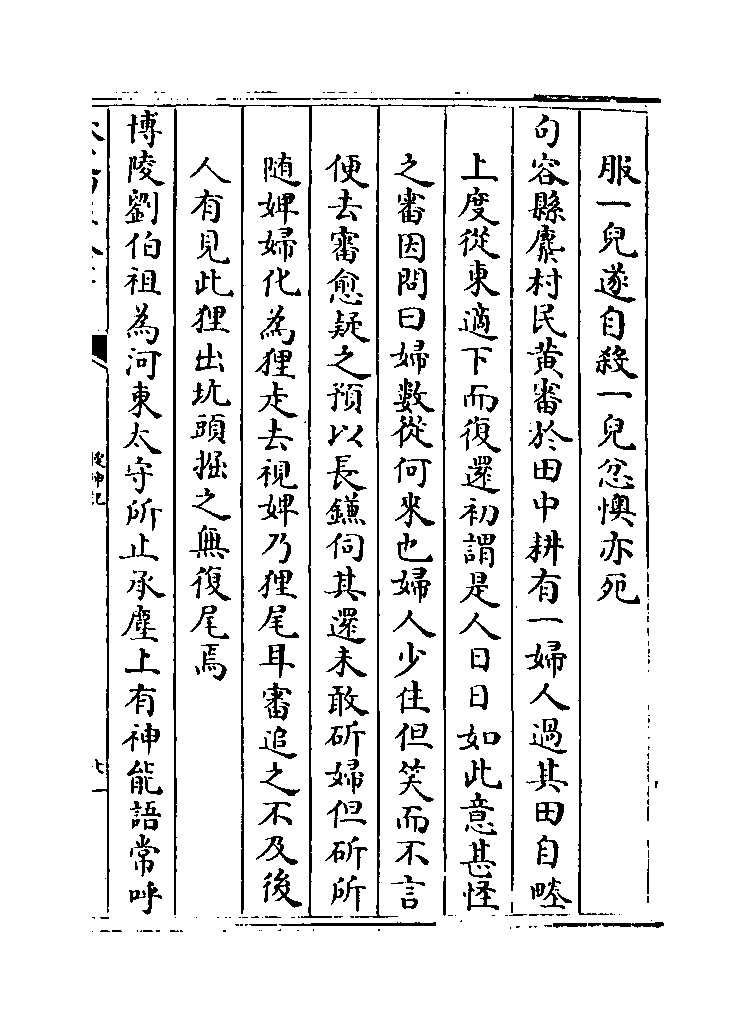 服一兒遂自殺一兒忿懊亦死
句容縣麋村民黄審於田中耕有一婦人過其田自畻
上度從東適下而復還初謂是人日日如此意甚怪
之審因問曰婦數從何來也婦人少住但笑而不言
便去審愈疑之預以長鎌伺其還未敢斫婦但斫所
随婢婦化為狸走去視婢乃狸尾耳審追之不及後
人有見此狸出坑頭掘之無復尾焉
博陵劉伯祖為河東太守所止承塵上有神能語常呼
搜神記